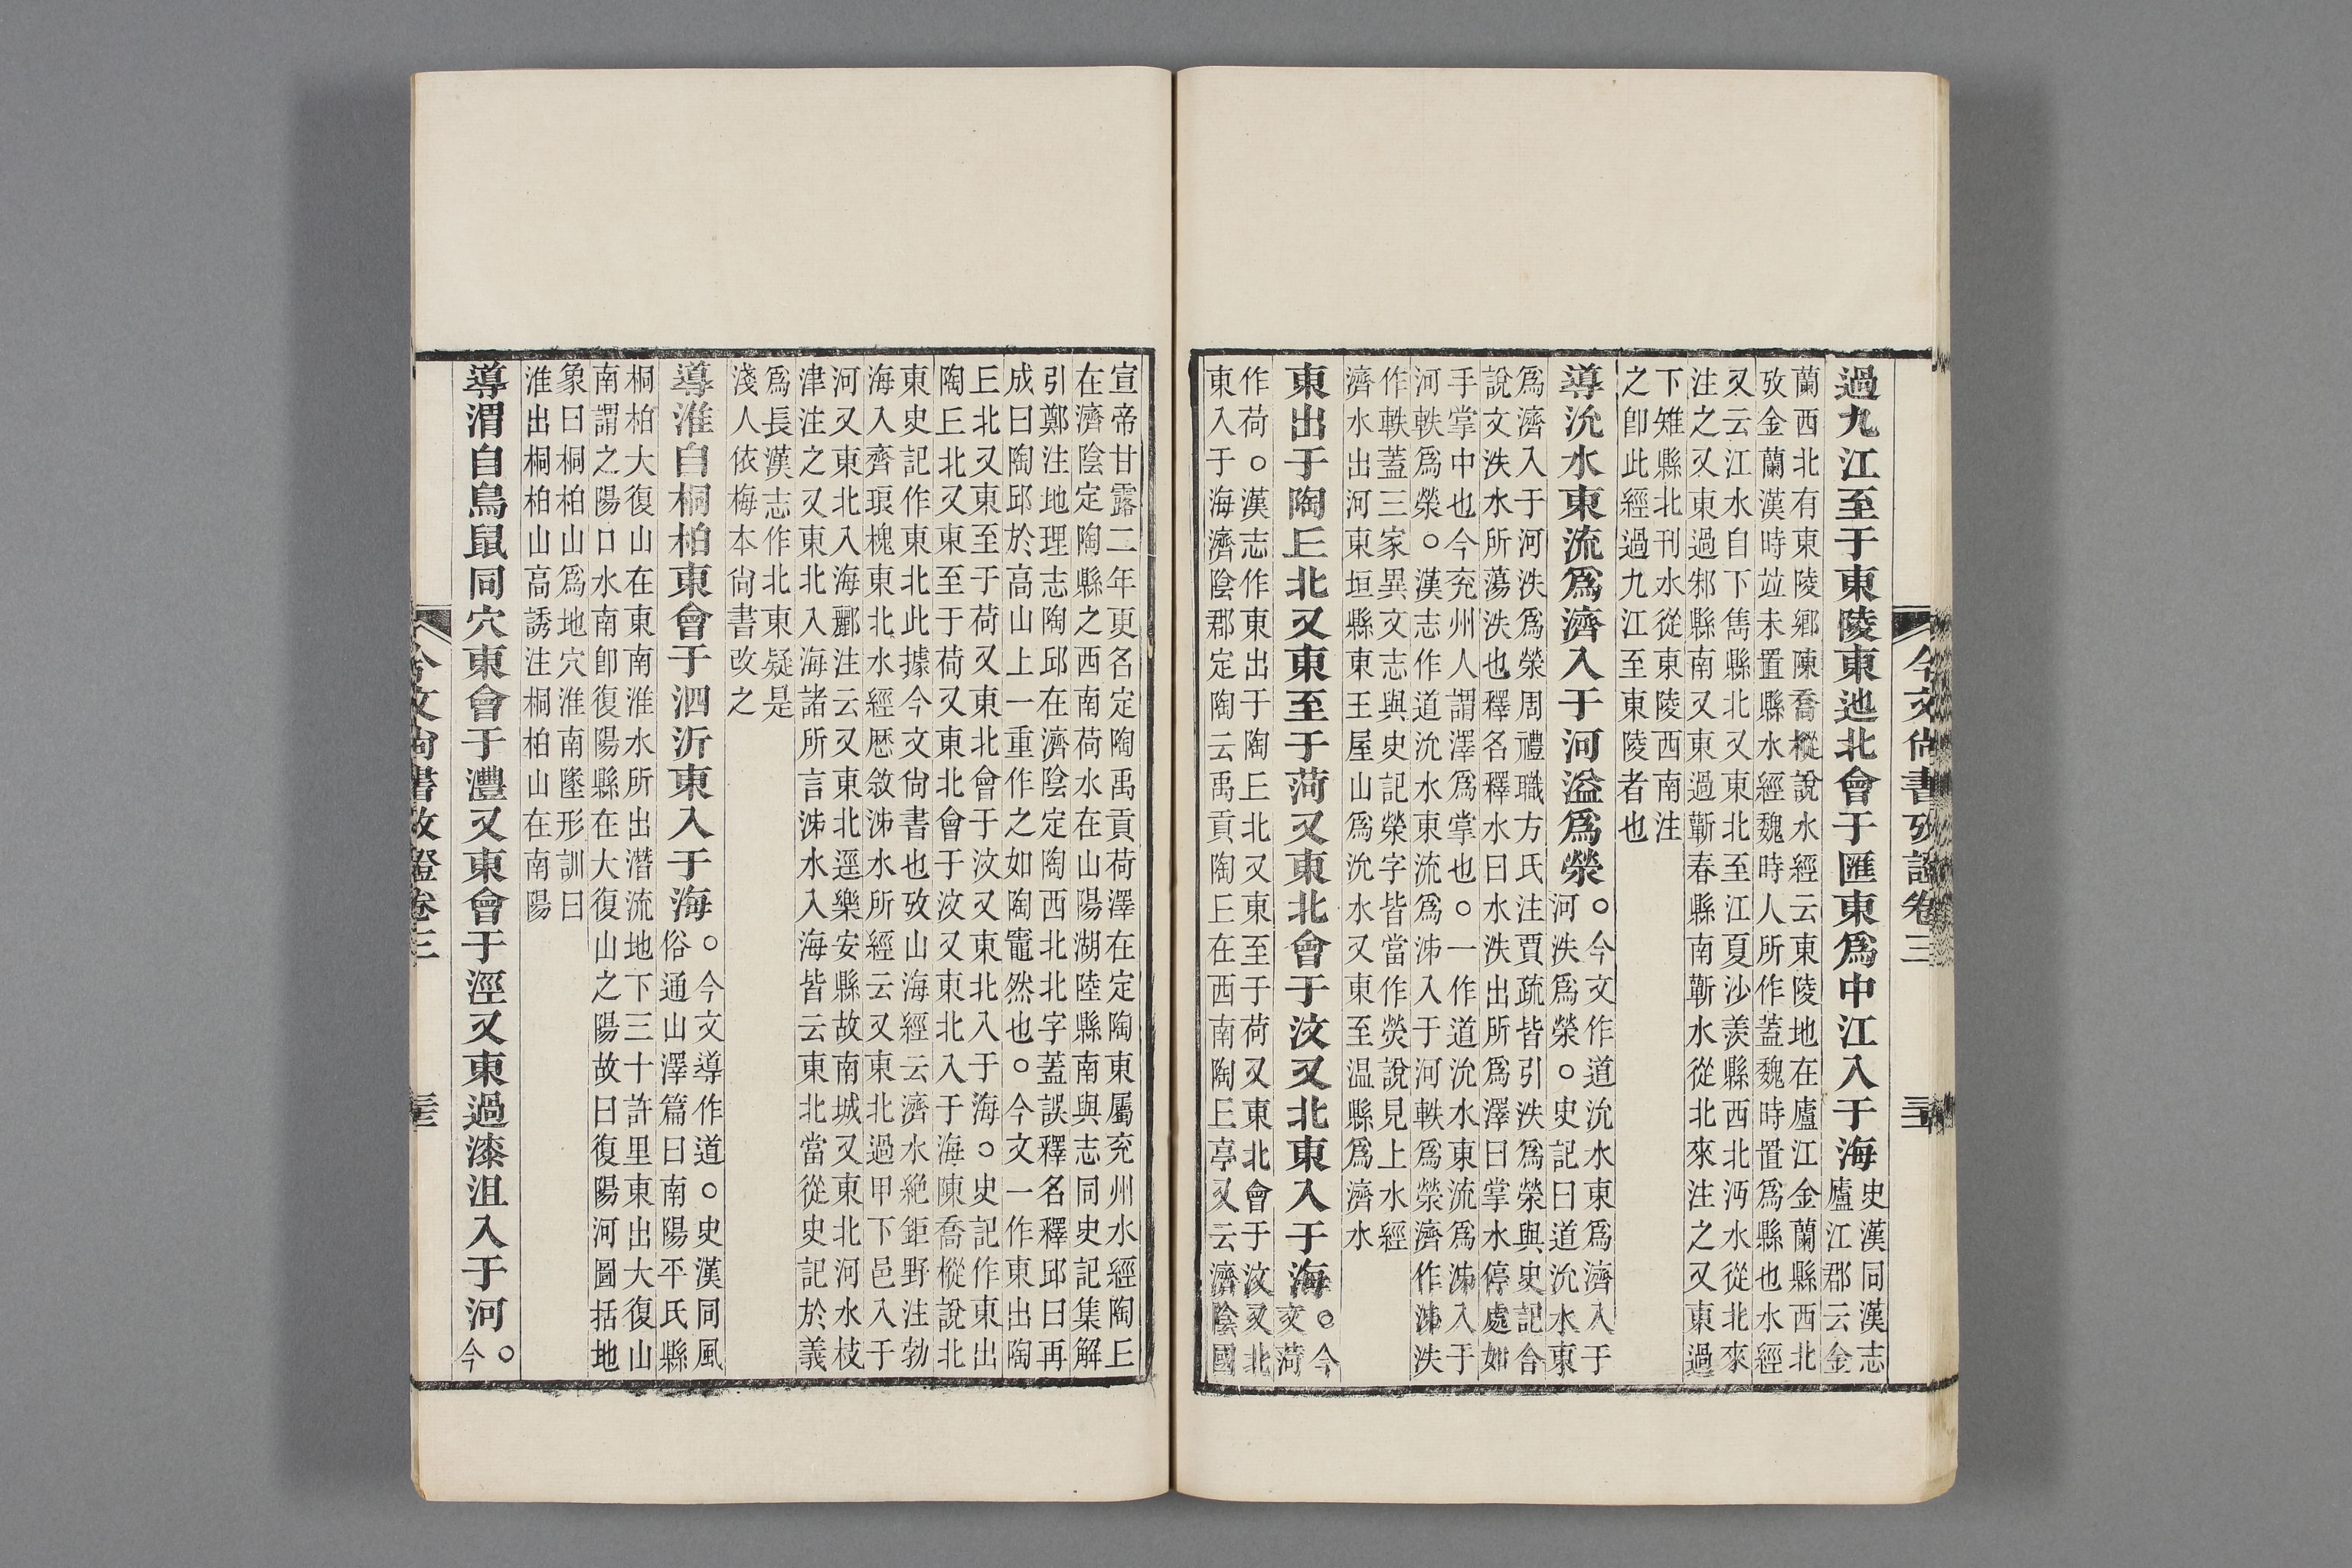 今文尚書攷證卷三
過九江至于東陵東迆北會于匯東爲中江入于海史漢同漢志
廬江郡云金
蘭西北有東陵鄉陳喬樅說水經云東陵地在廬江金蘭縣西北
攷金蘭漢時竝未置縣水經魏時人所作蓋魏時置爲縣也水經
又云江水自下雋縣北又東北至江夏沙羨縣西北沔水從北來
注之又東過邾縣南又東過蘄春縣南蘄水從北來注之又東過
下雉縣北刊水從東陵西南注
之卽此經過九江至東陵者也
導沇水東流爲濟入于河溢爲滎○今文作道沇水東爲濟入于
河泆爲滎○史記曰道沇水東
爲濟入于河泆爲滎周禮職方氏注賈疏皆引泆爲滎與史記合
說文泆水所蕩泆也釋名釋水曰水泆出所爲澤曰掌水停處如
手掌中也今兖州人謂澤爲掌也○一作道沇水東流爲泲入于
河軼爲滎○漢志作道沇水東流爲泲入于河軼爲滎濟作泲泆
作軼蓋三家異文志與史記滎字皆當作熒說見上水經
濟水出河東垣縣東王屋山爲沇水又東至温縣爲濟水
東出于陶㠯北又東至于菏又東北會于汶又北東入于海○今
文菏
作荷○漢志作東出于陶㠯北又東至于荷又東北會于汶又北
東入于海濟陰郡定陶云禹貢陶㠯在西南陶㠯亭又云濟陰國
宣帝甘露二年更名定陶禹貢荷澤在定陶東屬兖州水經陶㠯
在濟陰定陶縣之西南荷水在山陽湖陸縣南與志同史記集解
引鄭注地理志陶邱在濟陰定陶西北北字蓋誤釋名釋邱曰再
成曰陶邱於高山上一重作之如陶竈然也○今文一作東出陶
㠯北又東至于荷又東北會于汶又東北入于海○史記作東出
陶㠯北又東至于荷又東北會于汶又東北入于海陳喬樅說北
東史記作東北此據今文尚書也攷山海經云濟水絶鉅野注勃
海入齊琅槐東北水經歷敘泲水所經云又東北過甲下邑入于
河又東北入海酈注云又東北逕樂安縣故南城又東北河水枝
津注之又東北入海諸所言泲水入海皆云東北當從史記於義
爲長漢志作北東疑是
淺人依梅本尚書改之
導淮自桐柏東會于泗沂東入于海○今文導作道○史漢同風
俗通山澤篇曰南陽平氏縣
桐柏大復山在東南淮水所出潛流地下三十許里東出大復山
南謂之陽口水南卽復陽縣在大復山之陽故曰復陽河圖括地
象曰桐柏山爲地穴淮南墬形訓曰
淮出桐柏山高誘注桐柏山在南陽
導渭自鳥鼠同穴東會于灃又東會于涇又東過漆沮入于河○
今
今文尚書攷證卷三